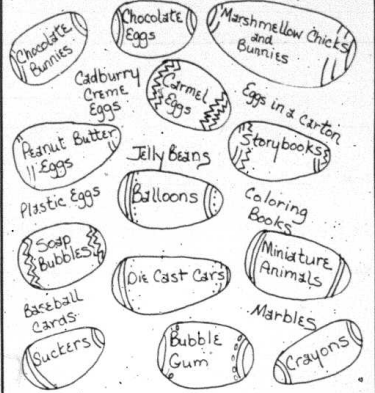 Chocolate
Bunnies
Chocolate
Eggs
Marshmellow Chicks
and
Bunnies
Cadburry
Creme
Eggs
Carmel
Eggs
Eggs in a carton
Peanut Butter
Eggs
Storybooks
Jelly Beans
Plastic Eggs
Balloons
Coloring
Books
Soap
Bubbles
Die Cast Cars
Miniature
Animals
Baseball
Cards
Marbles
Suckers
Bubble
Gum
Crayons